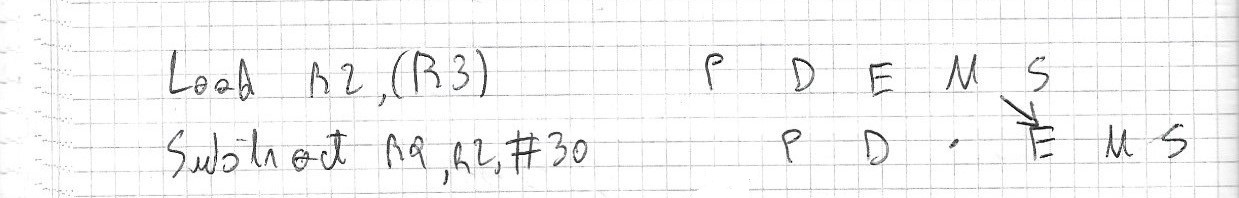 Load R2,(R3) P D E M S
Subtract R9,R2,#30 P D · E M S